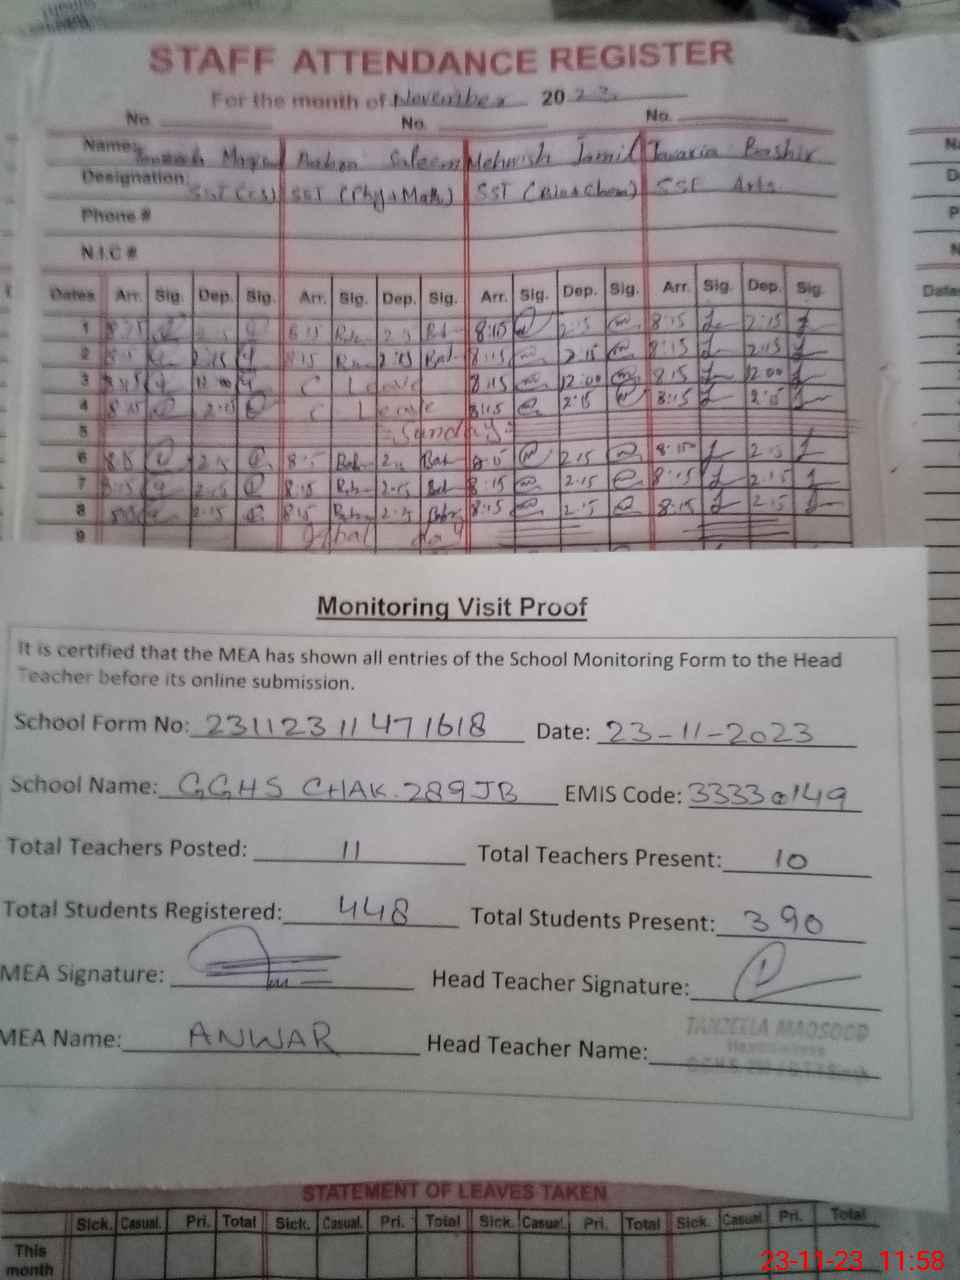 STAFF ATTENDANCE REGISTER
For the month of November 2023
No. No. No.
Name: Saleem Mehwish Jamil Javaria Bashir
Designation: SST (CS) SST (Phy+Math) SST (Bio+Chem) SST Arts
Phone #
N.I.C #
Dates Arr. Sig. Dep. Sig. Arr. Sig. Dep. Sig. Arr. Sig. Dep. Sig. Arr. Sig. Dep. Sig.
1 8:15 2:15 8:15 2:15 8:15 2:15 8:15 2:15
2 8:15 2:15 8:15 2:15 8:15 2:15 8:15 2:15
3 8:15 12:00 C Leave 8:15 12:00 8:15 12:00
4 8:15 2:15 C Leave 8:15 2:15 8:15 2:15
5 Sunday
6 2:15 2:15 8:15 2:15
7 8:15 2:15 8:15 2:15 8:15 2:15 8:15 2:15
8 2:15 8:15 2:15 8:15 2:15 8:15 2:15
9 Iqbal day
Monitoring Visit Proof
It is certified that the MEA has shown all entries of the School Monitoring Form to the Head
Teacher before its online submission.
School Form No: 23112311471618 Date: 23-11-2023
School Name: GGHS CHAK.289JB EMIS Code: 33330149
Total Teachers Posted: 11 Total Teachers Present: 10
Total Students Registered: 448 Total Students Present: 390
MEA Signature: Head Teacher Signature:
TANZEELA MAQSOOD
MEA Name: ANWAR Head Teacher Name:
STATEMENT OF LEAVES TAKEN
Sick. Casual. Pri. Total Sick. Casual. Pri. Total Sick. Casual. Pri. Total Sick. Casual Pri. Total
This
month
23-11-23 11:58